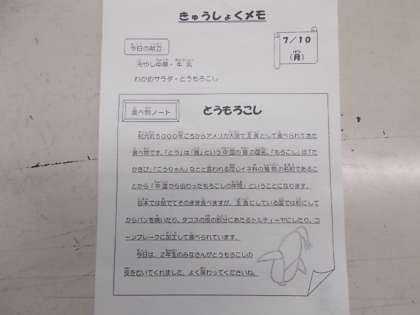 きゅうしょくメモ
7/10
(月)
今日の献立
冷やし中華・牛乳
わかめサラダ・とうもろこし
食べ物ノート
とうもろこし
紀元前5000年ごろからアメリカ大陸で主食として食べられてきた
食べ物です。「とう」は「唐」という中国の昔の国名、「もろこし」は「た
かきび」「こうりゃん」などと言われるイネ科の植物の和名であるこ
とから「中国から伝わったもろこしの仲間」ということになります。
日本ではゆでてそのまま食べますが、主食にしている国では粉にして
からパンを焼いたり、タコスの皮の部分にあたるトルティーヤにしたり、コ
ーンフレークに加工して食べられています。
今日は、2年生のみなさんがとうもろこしの
皮をむいてくれました。よく味わってくださいね。